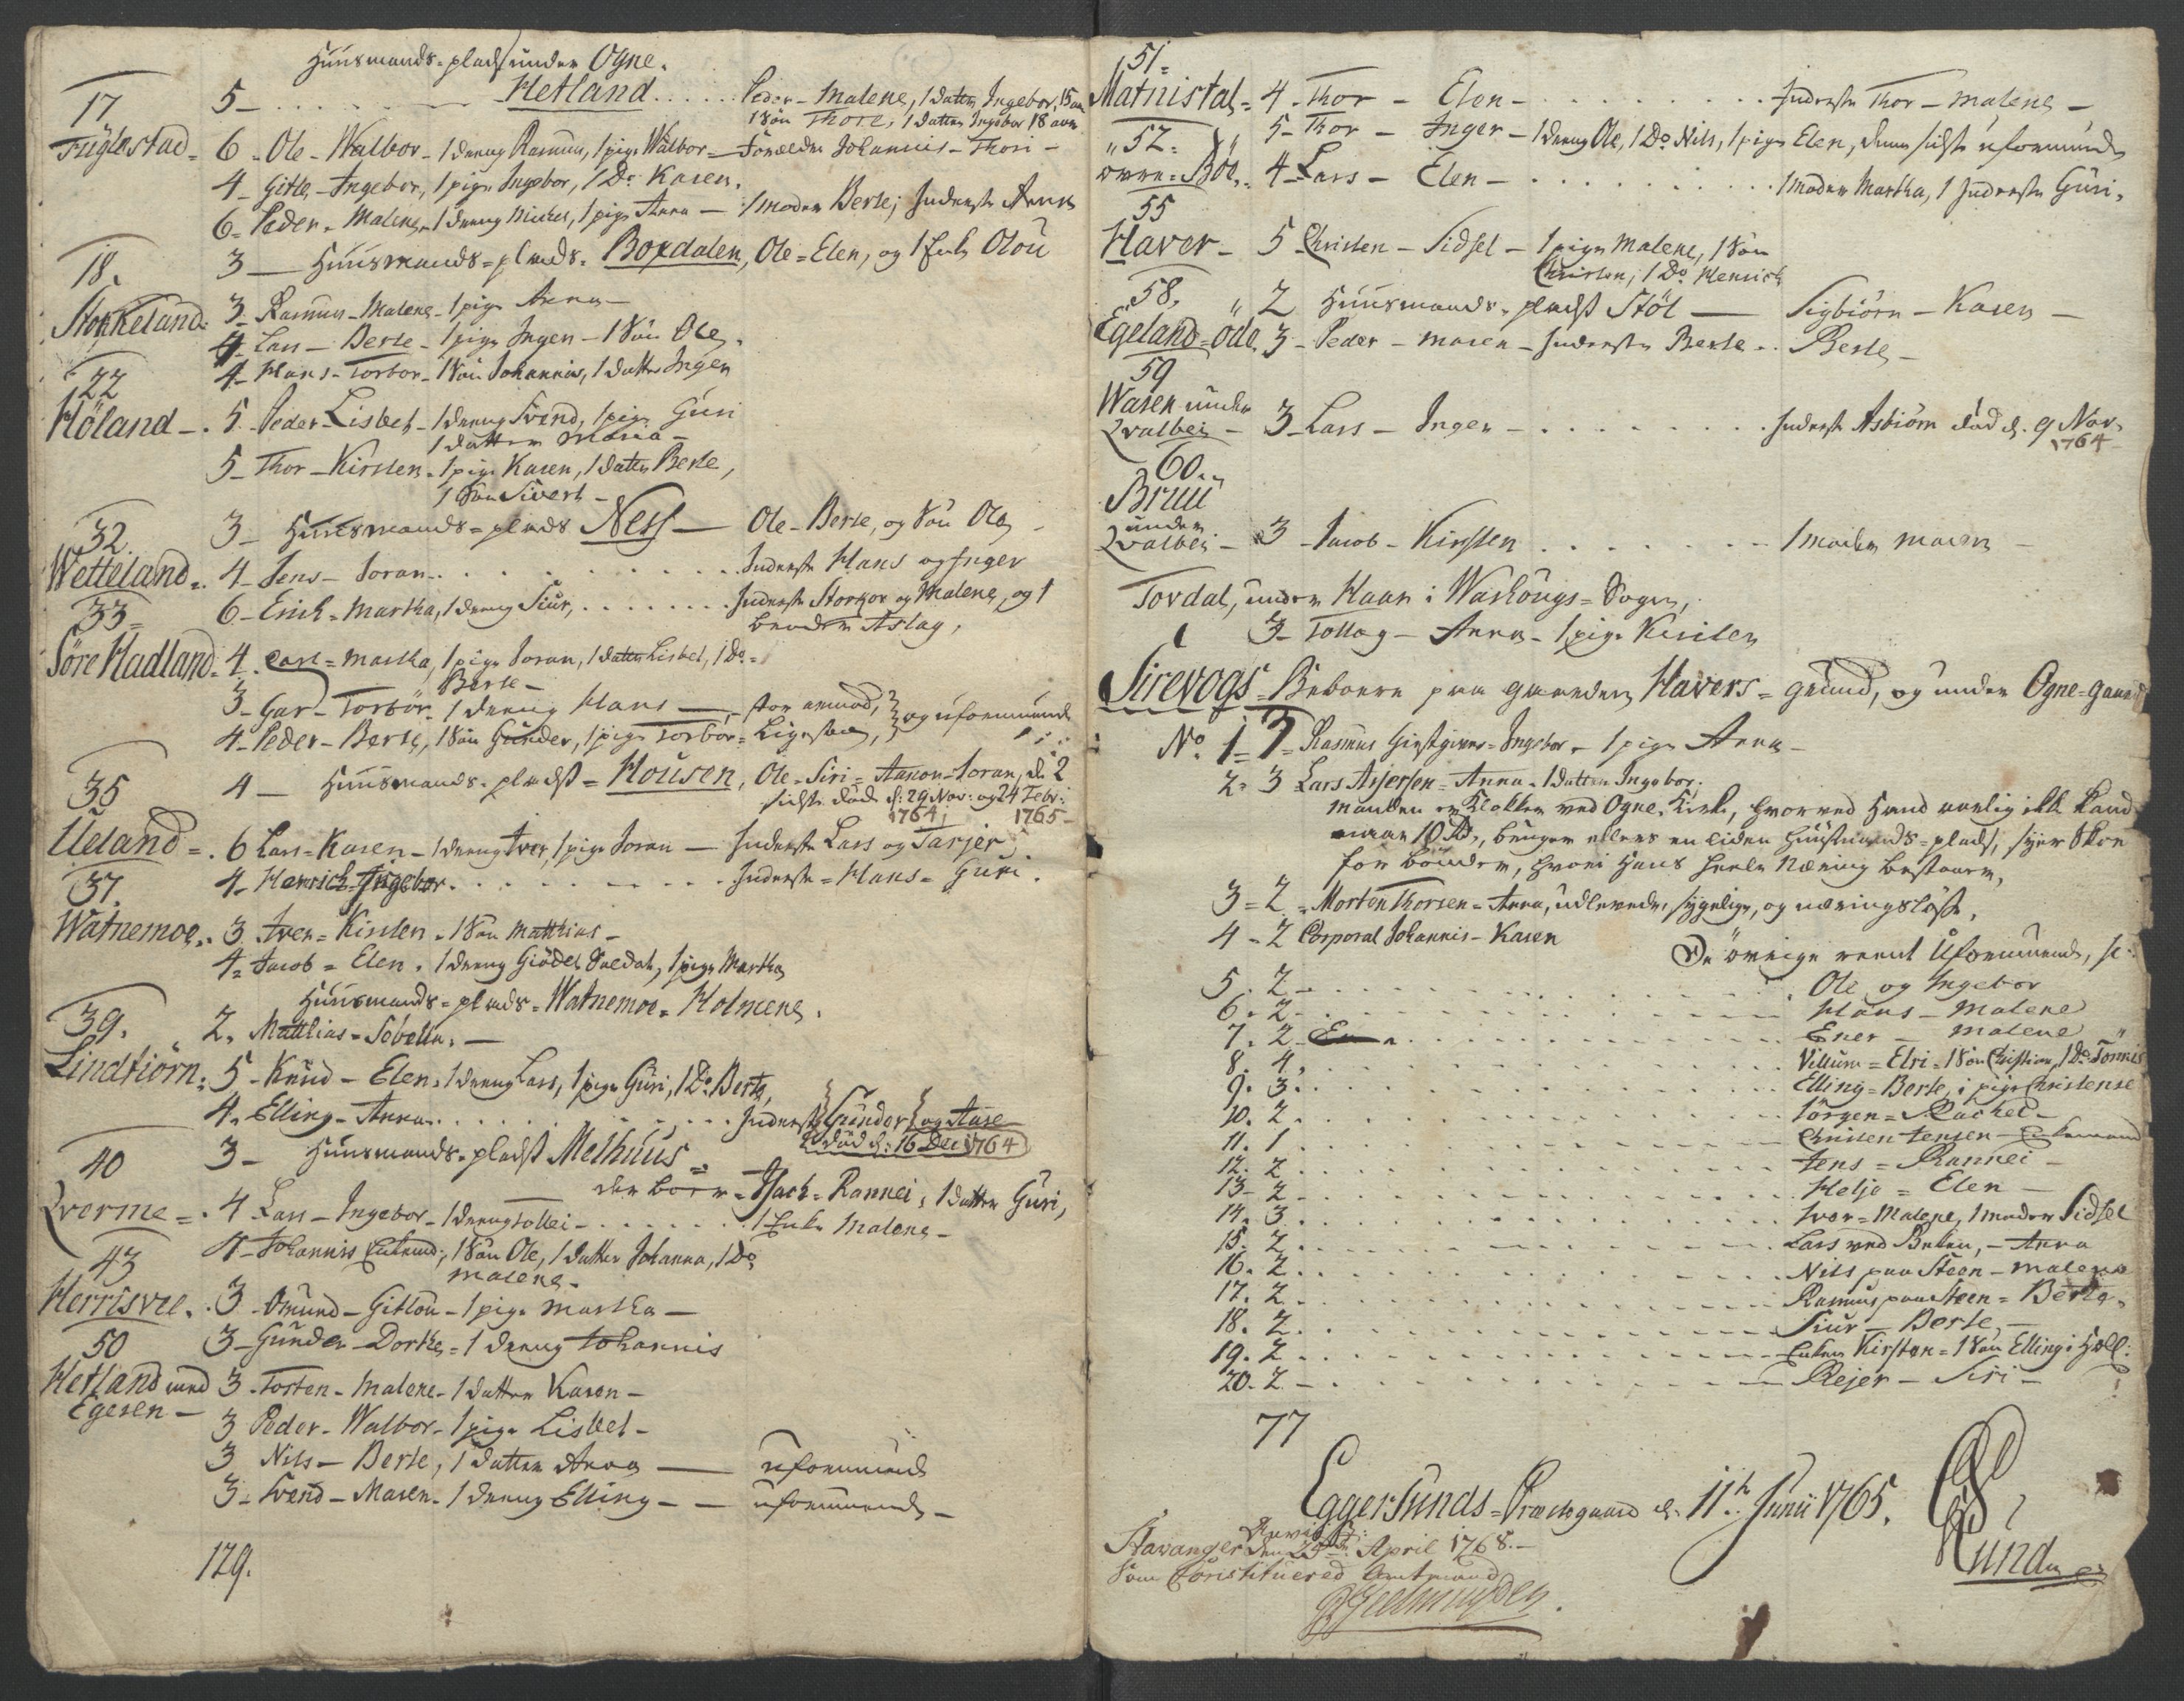 Huusmands-plads under Ogne.
5 - Hetland Peder - Malene, 1 datter Ingebor, 15 aar
1 Søn Thore, 1 datter Ingebor 18 aar
17
Fuglestad - 6 - Ole - Walbor - 1 dreng Rasmus, 1 pige Walbor - Forældre Johannis - Thori -
4 - Gitle - Ingebor, 1 pige Ingebor, 1 Do Karen.
6 - Peder - Malene - 1 dreng Michel, 1 pige Anna - 1 moder Berte; Inderste Anna
3 - Huusmands-plads - Boxdalen, Ole = Elen, og 1 Enke Olou
18.
Stokkeland - 3 - Rasmus - Malene - 1 pige Anna -
4 - Lars - Berte - 1 pige Inger - 1 Søn Ole,
4 - Hans - Torbor - 1 Søn Johannis, 1 datter Inger
22
Høland - 5 - Peder - Lisbet - 1 dreng Svend, 1 pige Guri
1 datter Maria -
5 - Thor - Kirsten - 1 pige Karen, 1 datter Berte,
1 Søn Sivert -
3 - Huusmands-plads Ness - Ole - Berte, og Søn Ole -
32
Wetteland - 4 - Jens - Joran Inderste Hans og Inger
6 - Erich - Martha, 1 dreng Siur, Inderste Storkor og Malene, og 1
broder Aslag,
33 -
Søre Hadland - 4 - Carl = Martha, 1 pige Joran, 1 datter Lisbet, 1 Do =
Berte -
3 - Gar - Torbør - 1 dreng Hans - stor armod,
4 - Peder - Berte, 1 Søn Gunder, 1 pige Torbor = Ligesaa, og uformuende
4 - Huusmands-pladst = Housen, Ole - Siri = Aanon - Joran, de 2
sidste død d: 29 Nov: og 24 Febr:
1764, 1765 -
35
Ueland - 6 Lars - Karen - 1 dreng Iver, 1 pige Joran - Inderste Lars og Tarjer,
4 - Henrich - Ingebor Inderste - Hans - Guri.
37.
Watnemoe - 3 - Iver - Kirsten - 1 Søn Matthias -
4 - Jacob = Elen - 1 dreng Giødel Soldat, 1 pige Martha
Huusmands-plads - Watnemoe - Holmene.
2 - Matthias - Sobella -
39.
Lindtiørn - 5 - Knud - Elen - 1 dreng Lars, 1 pige Guri, 1 Do Berte,
4 - Elling - Anna Inderste Gunder og Aase
død d: 16 Dec 1764
3 - Huusmands-pladst Melhuus =
der boer - Isach - Rannei, 1 datter Guri,
40
Qverme - 4 Lars - Ingebor - 1 dreng Tollei - 1 Enke Malene -
4 - Johannis Enkemd, 1 Søn Ole, 1 datter Johanna, 1 Do
Malene -
43
Herrisvee - 3 - Omund - Gitlou - 1 pige Martha -
3 - Gunder - Dorthe - 1 dreng Johannis
50
Hetland ved Egesen - 3 - Torsten - Malene - 1 datter Karen -
3 Peder - Walbor - 1 pige Lisbet -
3 Nils - Berte, 1 datter Anna - uformuend
3 - Svend - Maren - 1 dreng Elling - - uformuende -
129.
51 -
Matnistal - 4 - Thor - Elen - Inderste Thor - Malene -
5 - Thor - Inger - 1 dreng Ole, 1 Do Nils, 1 pige Elen, denne sidste uformuende
52 -
Øvre - Bøe - 4 - Lars - Elen - 1 moder Martha, 1 Inderste Guri,
55
Haver - 5 Christen - Sidsel - 1 pige Malene, 1 Søn
Christen, 1 Do Henrich
2 Huusmands-pladst Støl - Sigbiørn - Karen -
58,
Egeland - øde 3 - Peder - Maren - Inderste Berte - Berte -
59
Wasen under
Qvalbei - 3 - Lars - Inger - Inderste Asbiørn død d. 9 Nov.
1764
60.
Bruu
under
Qvalbei - 3 - Jacob - Kirsten 1 moder Maren -
Tordal, under Haar i Warhougs-Sogn,
3 - Tollag - Anna - 1 pige Kirsten
Sirevogs - Beboere paa gaarden Havers - grund, og under Ogne-gaard
No. 1 - 3 - Rasmus Giestgiver - Ingebor - 1 pige Anna -
2 - 3 Lars Asjersen - Anna - 1 datter Ingebor,
manden er Klokker ved Ogne Kirke, hvorved hand aarlig ikke kand
naae 10 Rd, bruger ellers en liden Huusmands-plads, syer Skoe
for bønder, hvori hans heele Næring bestaaer,
3 - 2 - Morten Thorsen - Anna, udlevede, sygelige, og næringsløse,
4 - 2 Corporal Johannis - Karen
De øvrige reent Uformuende,
5. 2 - Ole og Ingebor
6. 2 - Hans - Malene
7. 2 - Ener - Malene
8. 4. Villum = Elri = 1 Søn Christian, 1 Do Tønnis
9. 3. Elling = Berte, 1 pige Christense
10. 2. Jørgen = Rachel -
11. 1. Christen Jensen - Enkemand
12. 2. Jens = Rannei -
13 - 2 - Helje = Elen -
14. 3. Iver = Malene, 1 moder Sidsel
15. 2. Lars ved Broen, - Anna
16. 2. Nils paa Steen - Malene
17. 2 Rasmus paa Steen = Berte,
18. 2. Siur - Berte -
19. 2. Enken Kirsten = 1 Søn Elling i Holl:
20. 2 - Rejer - Siri -
77
Eggersunds - Præstegaard d. 11te Junii 1765.
Lund
Revideret
Stavanger den 25de April 1768. -
Som Constitueret Amtmand